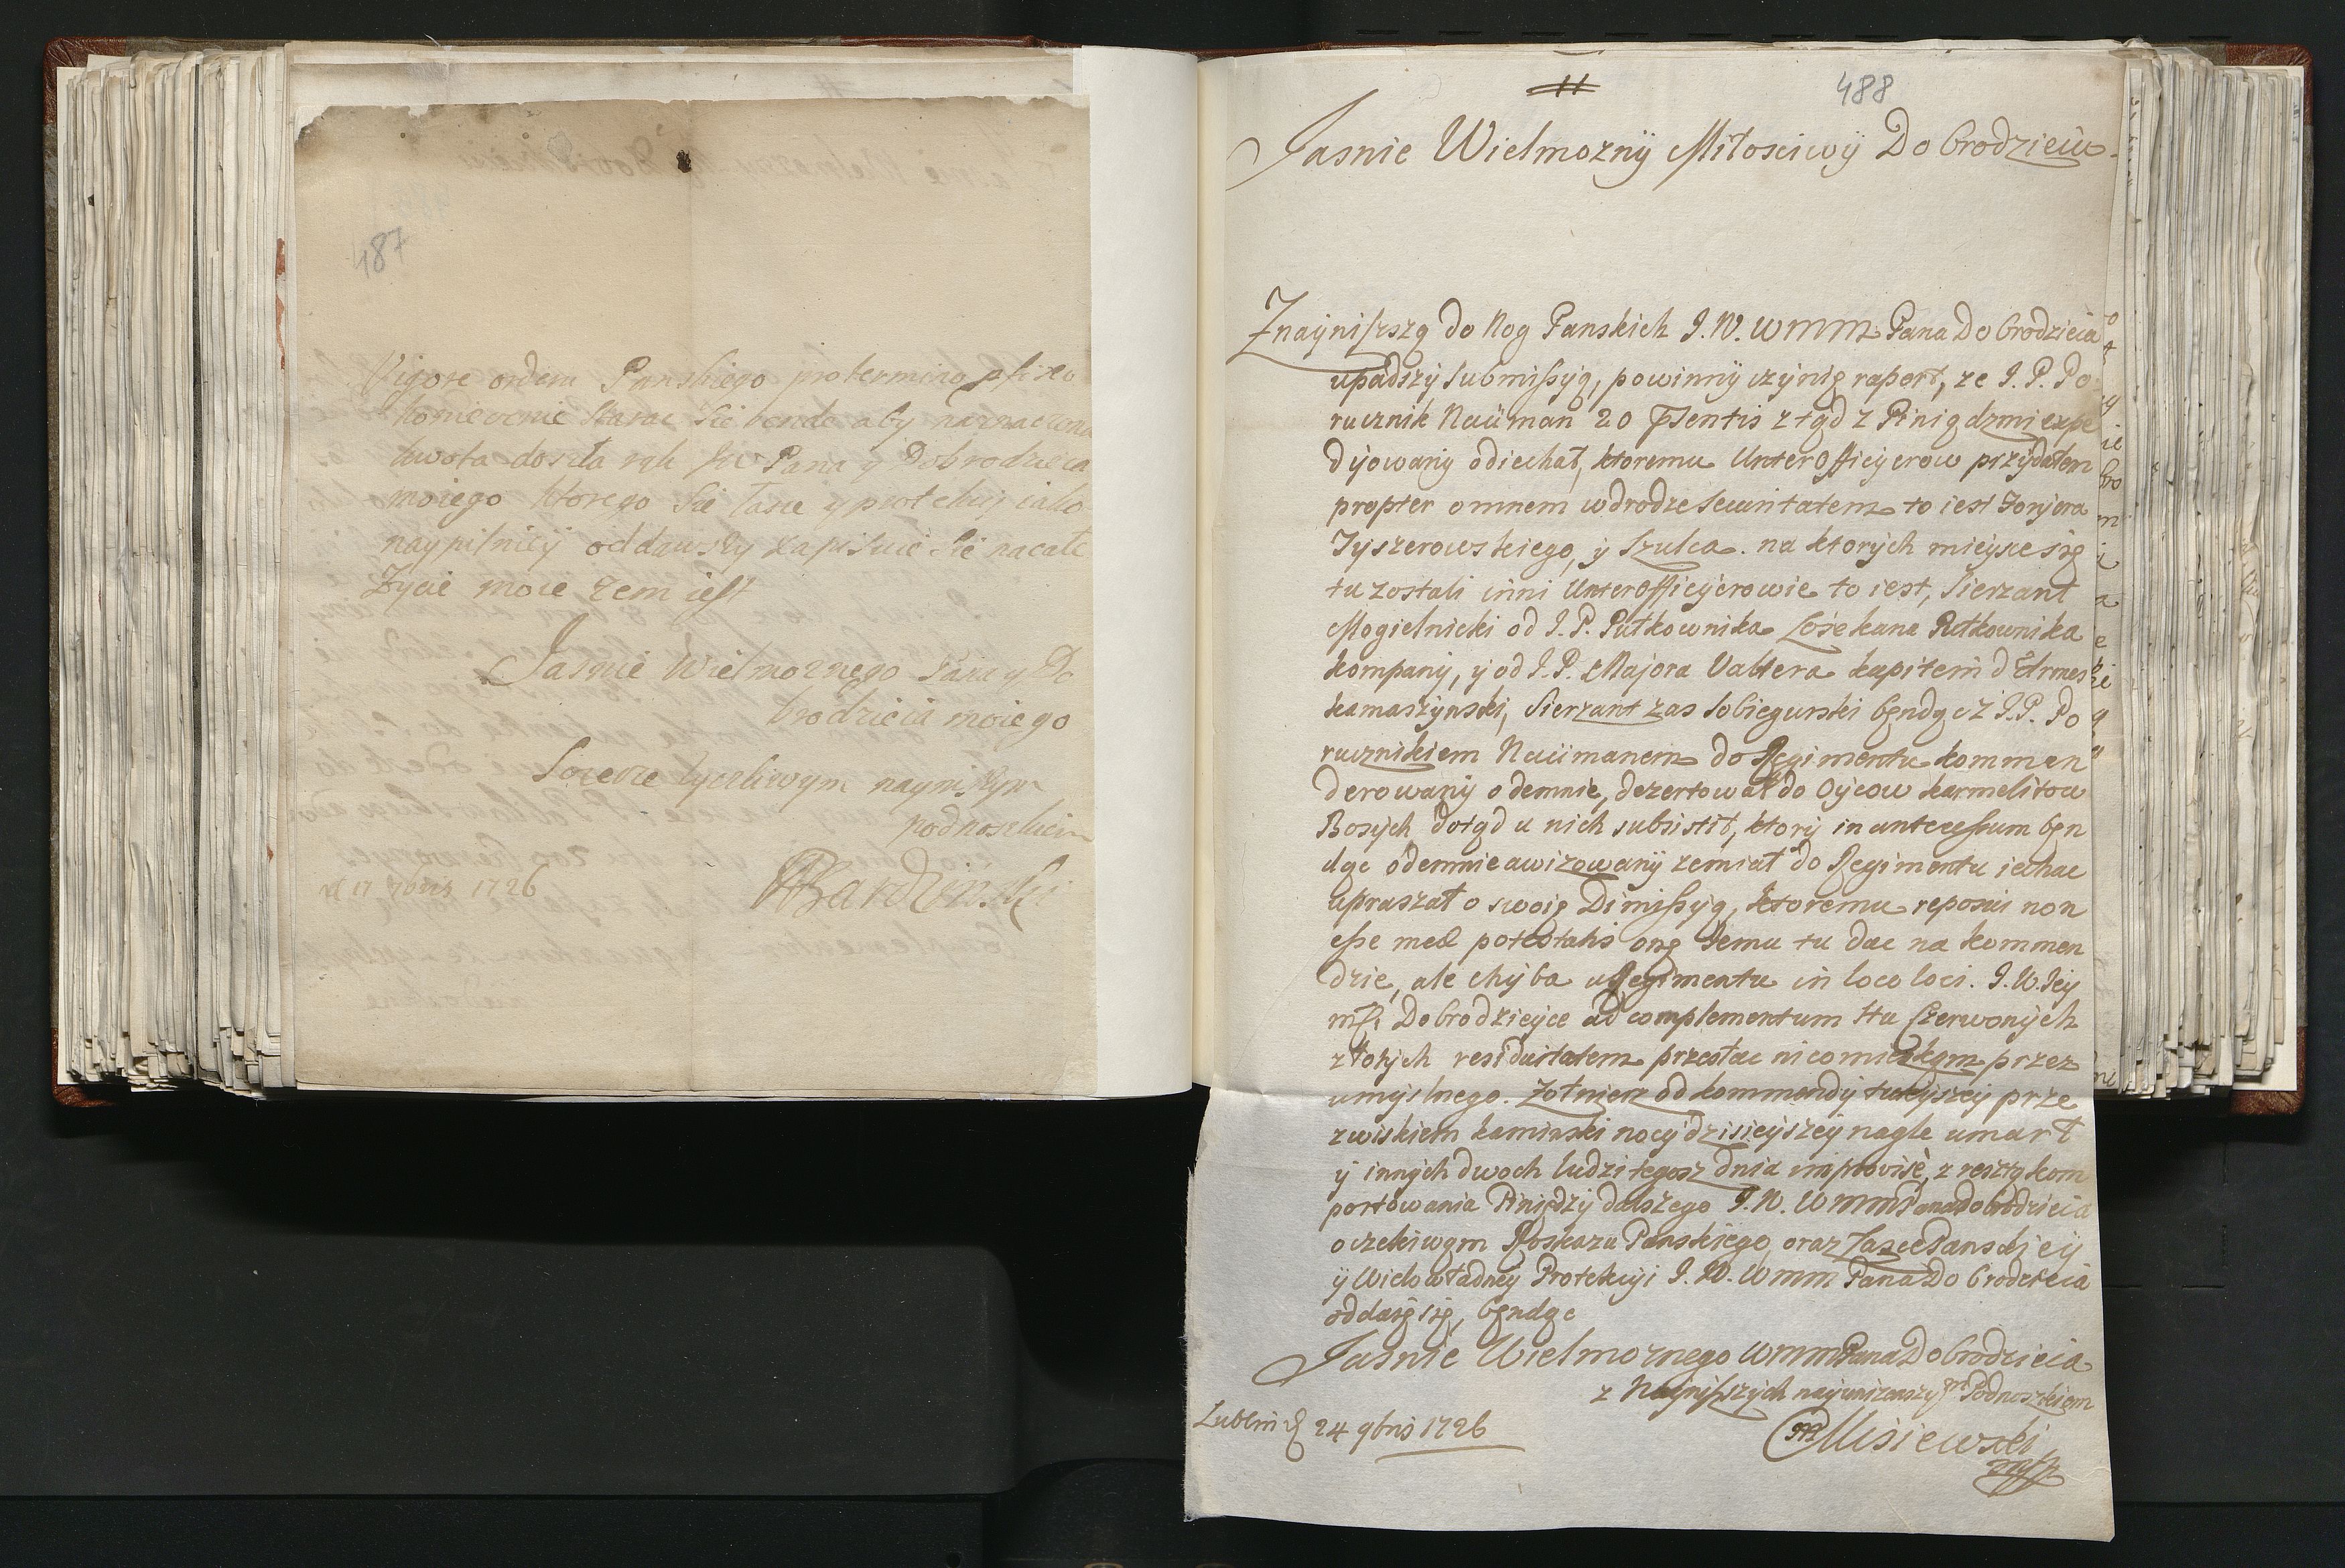 487
Vigore ordin Panskiego pro termino
koniecznie starac sie bende aby naznaczona
kwota doszła rąk Pana y Dobrodzieia
moiego ktorego sie łasce y protekcij iako
naypilniey oddawszy zapisuie się nacałe
Zycie moie zem iest
Jasnie Wielmoznego Pana y Do
brodzieia moiego
Szczerze życzliwym nayniszym
podnoszkiem
17 1726
488
Jasnie Wielmoznÿ Miłosciwÿ Dobrodzieiu
Znaÿniszszą do Nog Panskich J. W. WMM Pana Dobrodzieia
upadszÿ submissyą, powinnÿ czÿnię raport, ze J. P. Po
rucznik Naüman 20 ztąd z Piniądzmi expe
dÿowanÿ odiechał, ktoremu Unterofficÿerow przÿdałem
propter omnem wdrodze securitatem to iest
Tyszerowskiego, ÿ Szulca. na ktorÿch mieÿsce się
tu zostali inni Unterofficÿerowie to iest, Sierzant
Mogielnicki od J. P. Pułkownika
kompanÿ, ÿ od J. P. Majora Valtera kapitein d'Armes
kamaszÿnski, Sierzant zas Sobiegurski bęndąc z J. P. Po
rucznikiem Naümanem do Regimentu kommen
derowanÿ odemnie, dezertował do Oÿcow karmelitow
Bosÿch dotąd u nich subsistit, ktorÿ in antecessum bęn
dąc odemnie awizowanÿ zemiał do Regimentu iechac
upraszał o swoię Dimissyą, ktoremu reposui non
esse meæ potestatis onę Jemu tu dac na kommen
dzie, ale chÿba u Regimentu in loco loci. J. W. Jeÿ
mści Dobrodzieÿce ad complementum stu Czerwonÿch
złotÿch residuitatem przesłac nieomieszkam przez
umÿslnego. Zołnierz od kommendÿ tuteÿszeÿ prze
zwiskiem kaminski nocÿ dzisieÿszeÿ nagle umarł
ÿ innÿch dwoch ludzi tegosz dnia improvisè, z resztą kom
portowania Piniędzÿ dalszego J. W. WMM Pana Dobrodzieia
oczekiwam Roskazu Panskiego, oraz łasce Panskieÿ
ÿ Wielowładneÿ Protekcÿi J. W. WMM Pana Dobrodzieia
oddaię się, bęndąc
Jasnie Wielmoznego WMM Pana Dobrodzieia
z Naÿniszszÿch naÿunizenszÿm Podnoszkiem
Lublin 24 9bris 1726
Misiewski